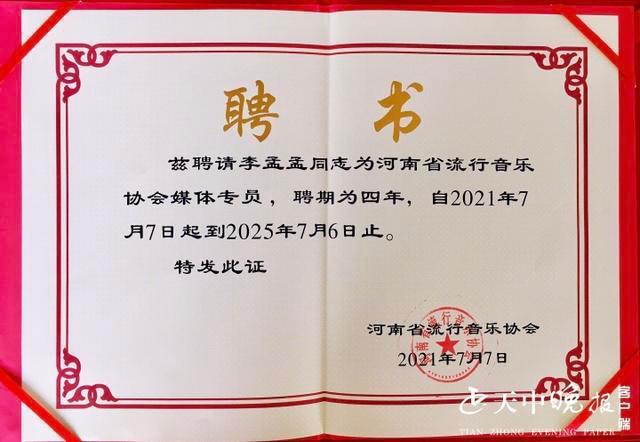 聘 书
兹聘请李孟孟同志为河南省流行音乐
协会媒体专员，聘期为四年，自2021年7
月7日起到2025年7月6日止。
特发此证
河南省流行音乐协会
2021年7月7日
河南省流行音乐协会
天中晚报
客户端
TIAN ZHONG EVENING PAPER